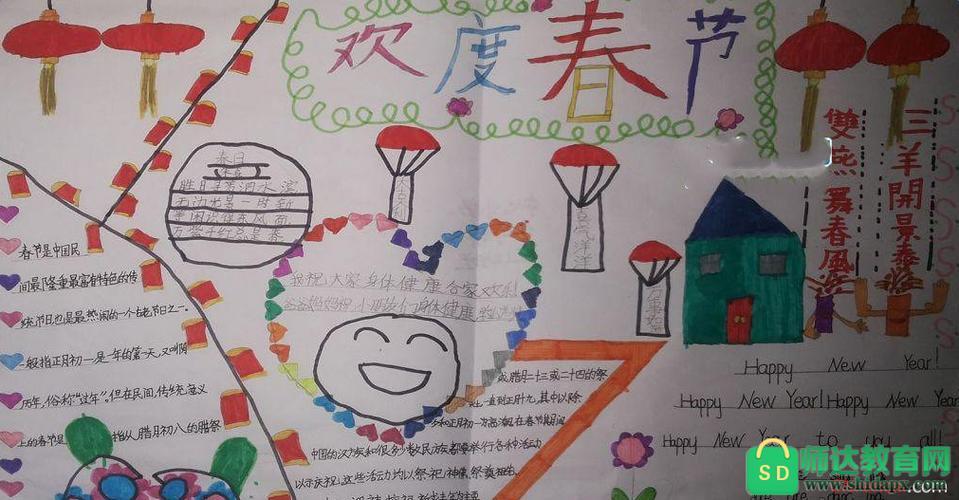 欢度春节
三羊開景泰
雙燕舞春風
春日
胜日寻芳泗水滨
无边光景一时新
等闲识得东风面
万紫千红总是春
大吉大利
喜气洋洋
我祝大家身体健康合家欢乐
春节是中国民
间最隆重最富有特色的传
统节日也是最热闹的一个古老节日之一。
一般指正月初一是一年的第一天,又叫阴
历年,俗称"过年"。但在民间,传统意义
上的春节是指从腊月初八的腊祭
或腊月二十三或二十四的祭
灶,一直到正月十九,其中以除
夕和正月初一为高潮在春节期间
中国的汉族和很多少数民族都要举行各种活动
以示庆祝,这些活动均以祭祀神佛、祭奠祖先、
Happy New Year!
Happy New Year! Happy New Year
Happy New Year to you all!
SD
师达教育网
www.shidapx.com